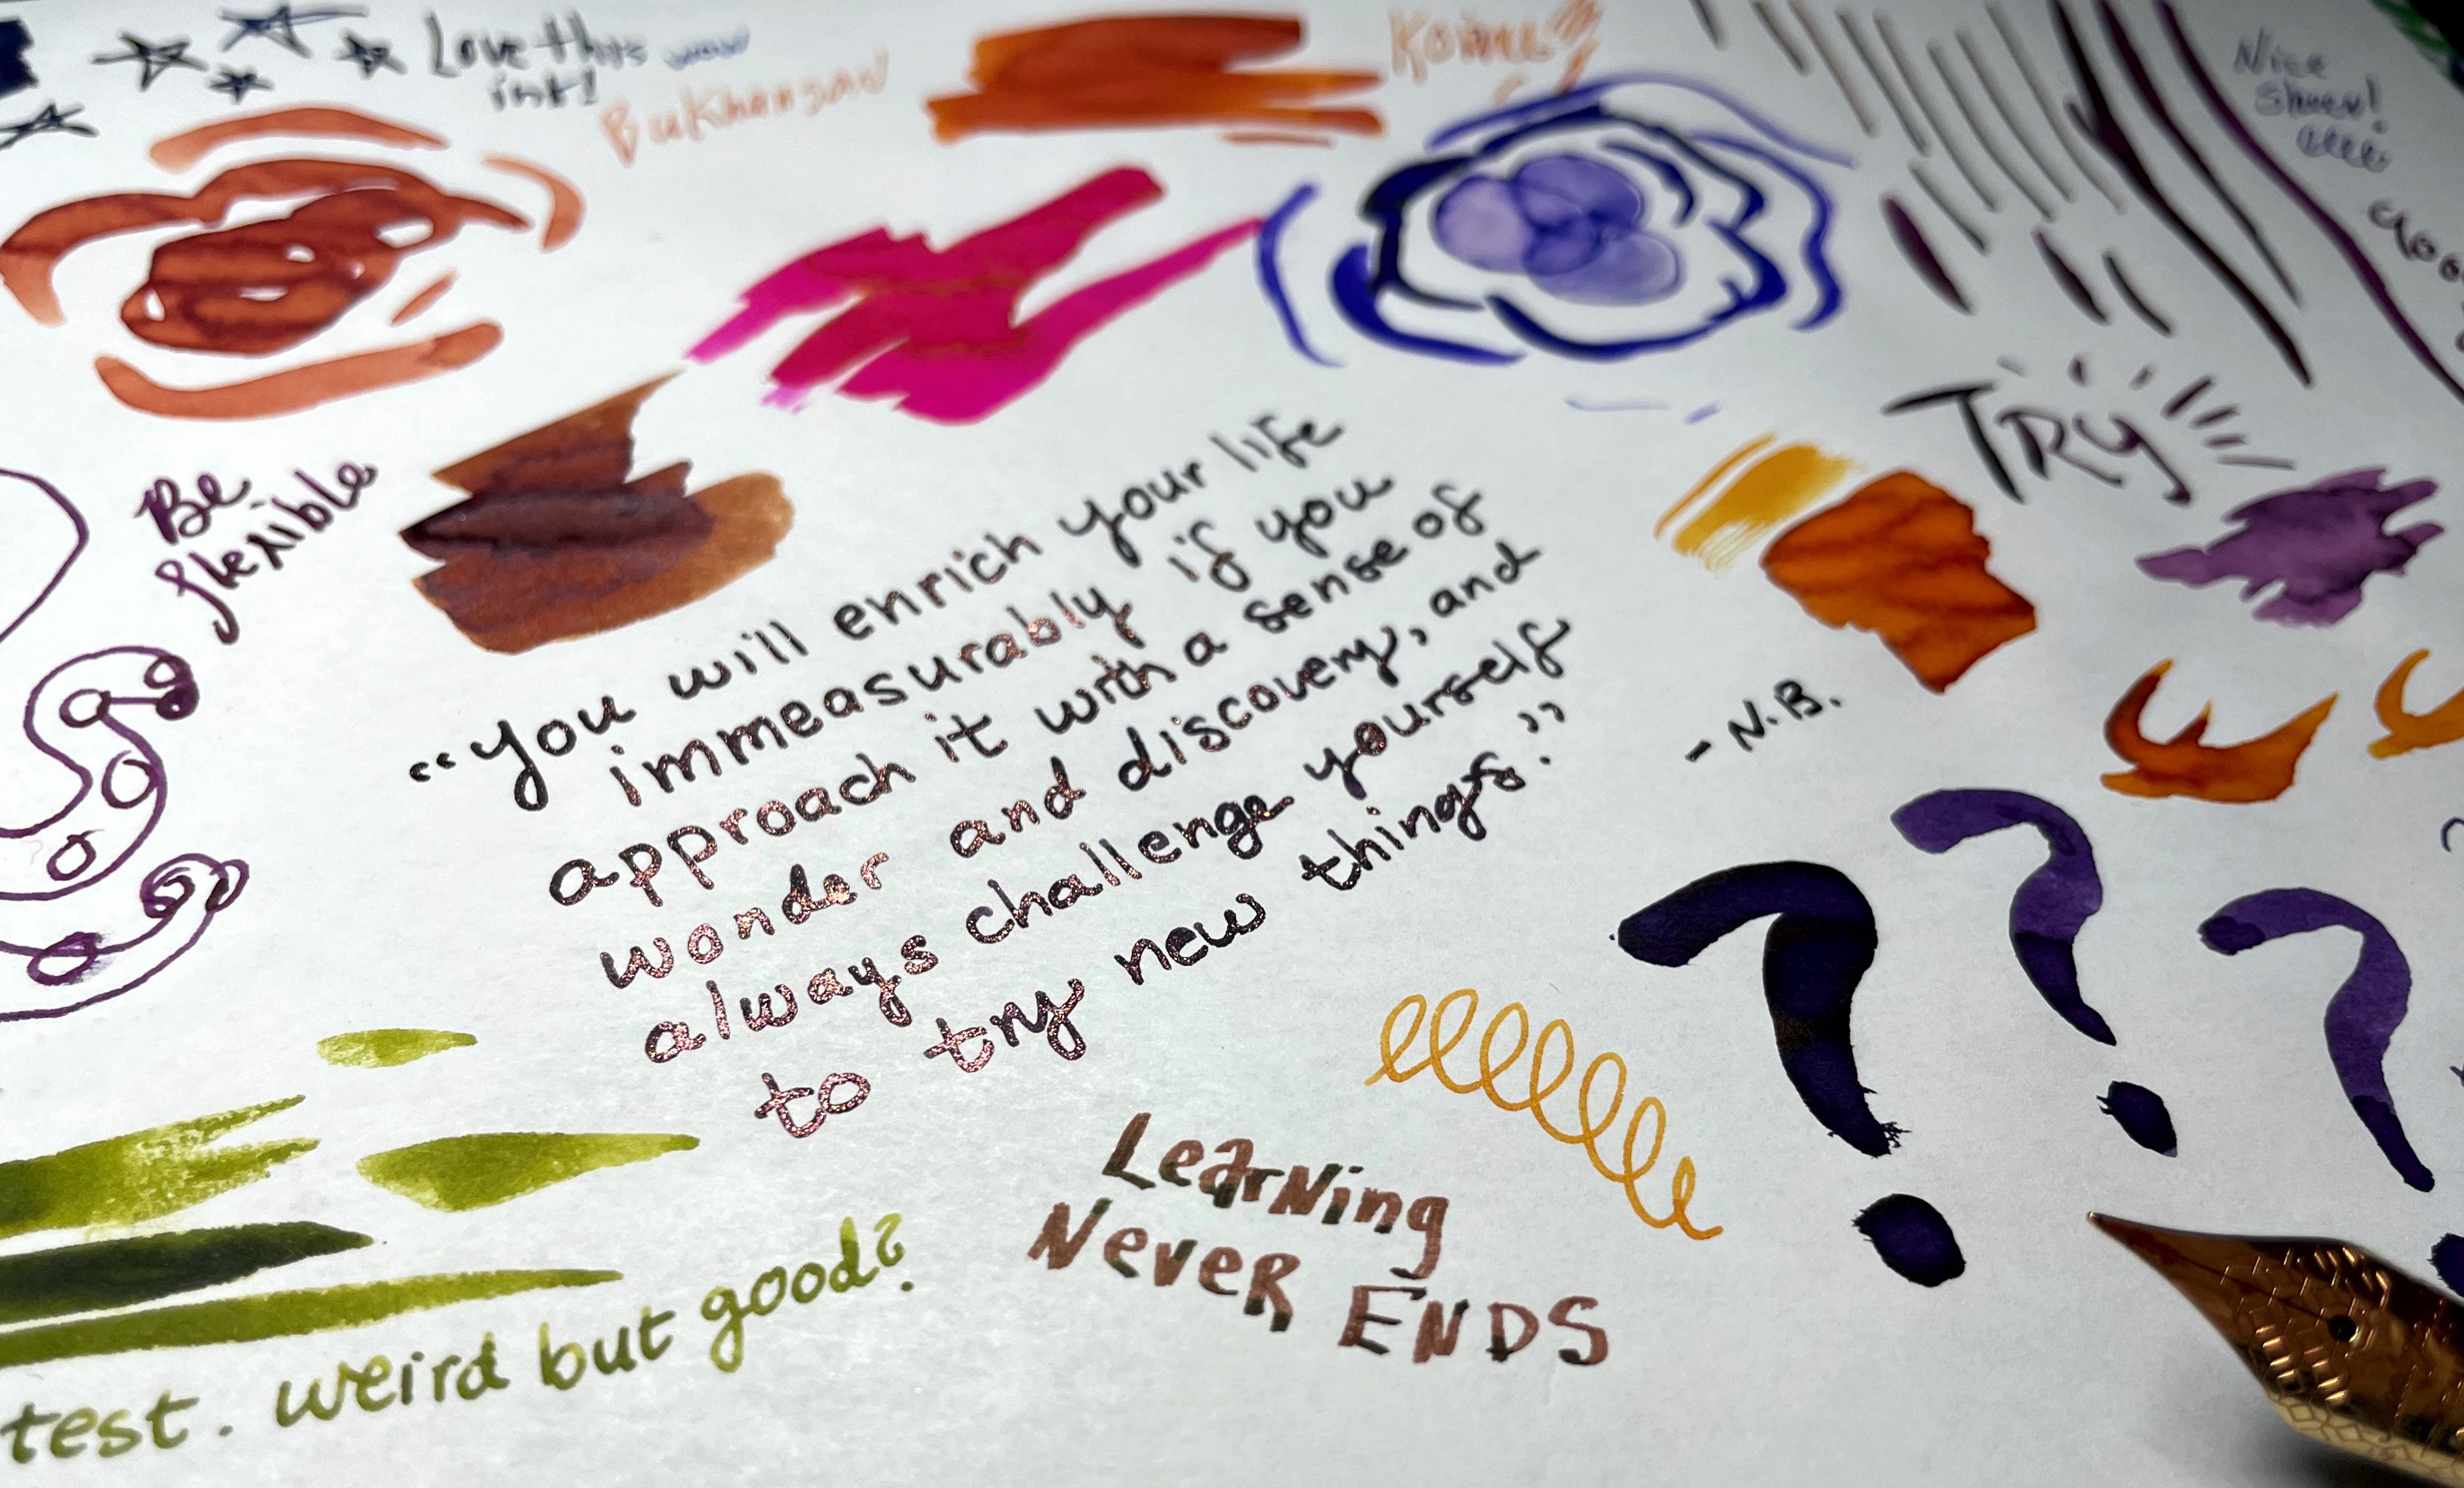 Love this wow
ink!
Bukhansan
Nice
Sheen!
TRY
Be
flexible
"you will enrich your life
immeasurably if you
approach it with a sense of
wonder and discovery, and
always challenge yourself
to try new things."
- N.B.
Learning
Never ENDS
test. weird but good?